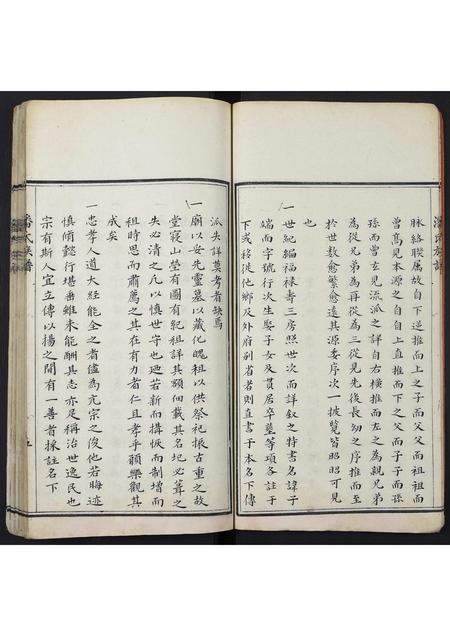 脉絡聯属故自下逆推而上之子而父父而祖祖而
曾髙見本源之自自上直推而下之父而子子而孫
孫而曾玄見流派之詳自右横推而左之為親兄弟
為從兄弟為再從為三從見先後長幼之序推而至
於世数愈繁愈遠其源委序次一披覽皆昭昭可見
也
一世紀編福禄壽三房照世次而詳叙之特書名諱子
端而字號行次生娶子女及貫居卒墓等項各註于
下或移徙他鄉及外府别省者則直書于本名下傳
派失詳莫考者缺焉
一廟以安先靈墓以藏化魄租以供祭祀振古重之故
堂寢山塋有圖有紀租詳其額佃載其名圮必葺之
失必清之凡以慎世守也廼若新而搆恢而制增而
租時思而肅薦之其在有力者仁且孝乎願樂觀其
成矣
一忠孝人道大經能全之者儘為亢宗之俊他若晦迹
慎脩懿行堪垂雖未能酬其志亦足稱治世逸民也
宗有斯人宜立傳以揚之間有一善者採註名下
潘氏族譜